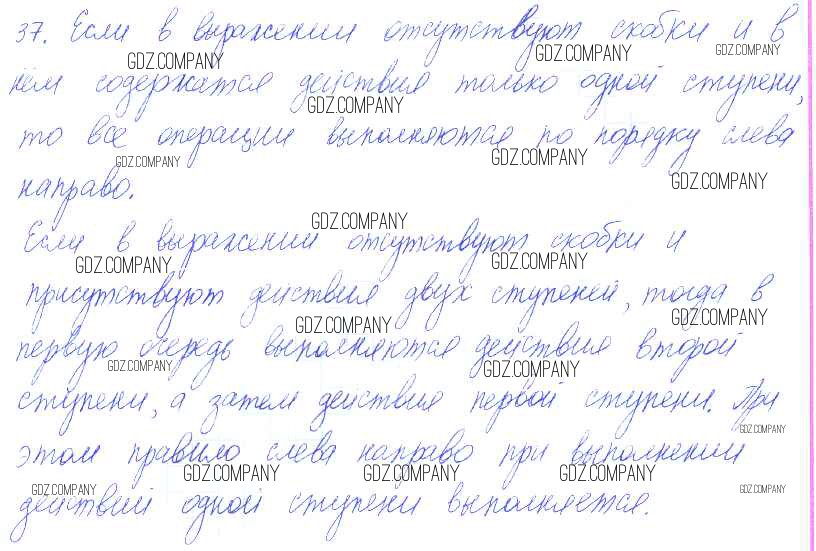 37. Если в выражении отсутствуют скобки и в
нём содержатся действия только одной ступени,
то все операции выполняются по порядку слева
направо.
Если в выражении отсутствуют скобки и
присутствуют действия двух ступеней, тогда в
первую очередь выполняются действия второй
ступени, а затем действия первой ступени. При
этом правило слева направо при выполнении
действий одной ступени выполняется.
GDZ.COMPANY GDZ.COMPANY GDZ.COMPANY
GDZ.COMPANY
GDZ.COMPANY GDZ.COMPANY
GDZ.COMPANY
GDZ.COMPANY
GDZ.COMPANY GDZ.COMPANY
GDZ.COMPANY GDZ.COMPANY
GDZ.COMPANY GDZ.COMPANY
GDZ.COMPANY
GDZ.COMPANY GDZ.COMPANY GDZ.COMPANY
GDZ.COMPANY GDZ.COMPANY